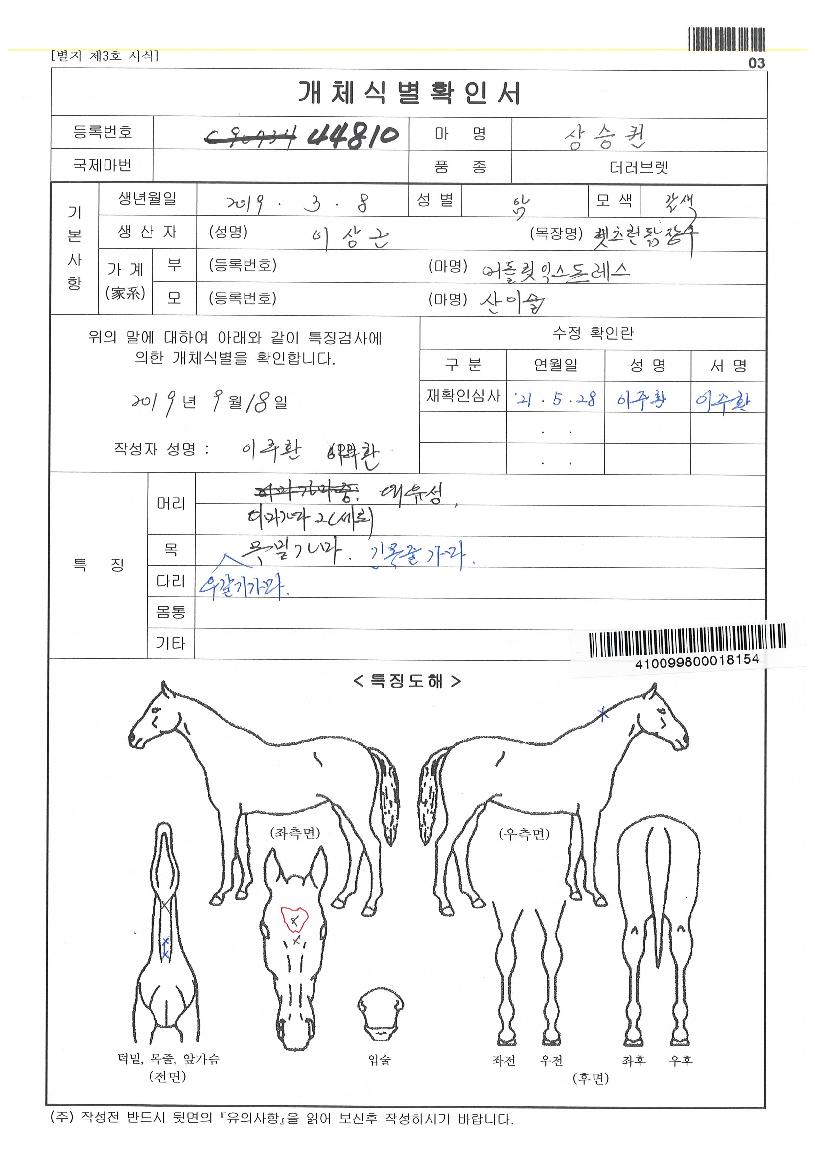 [별지 제3호 서식]
03
개체식별확인서
등록번호 44810 마 명 삼승퀸
국제마번 품 종 더러브렛
기본사항
생년월일 2019 . 3 . 8 성별 암 모색 갈색
생산자 (성명) 이상근 (목장명) 렛츠런팜장수
가계(家系) 부 (등록번호) (마명) 머플릿익스프레스
모 (등록번호) (마명) 산이슬
위의 말에 대하여 아래와 같이 특징검사에
의한 개체식별을 확인합니다.
2019년 9월 18일
작성자 성명 : 이주환 이주환
수정 확인란
구 분 연월일 성 명 서 명
재확인심사 '21 . 5 . 28 이주환 이주환
. .
. .
특 징
머리 여유성,
이마가마2(세로)
목 목밑가마. 긴목줄가마.
다리 우갈기가마.
몸통
기타
410099800018154
< 특징도해 >
(좌측면) (우측면)
턱밑, 목줄, 앞가슴 입술 좌전 우전 좌후 우후
(전면) (후면)
(주) 작성전 반드시 뒷면의 『유의사항』을 읽어 보신후 작성하시기 바랍니다.